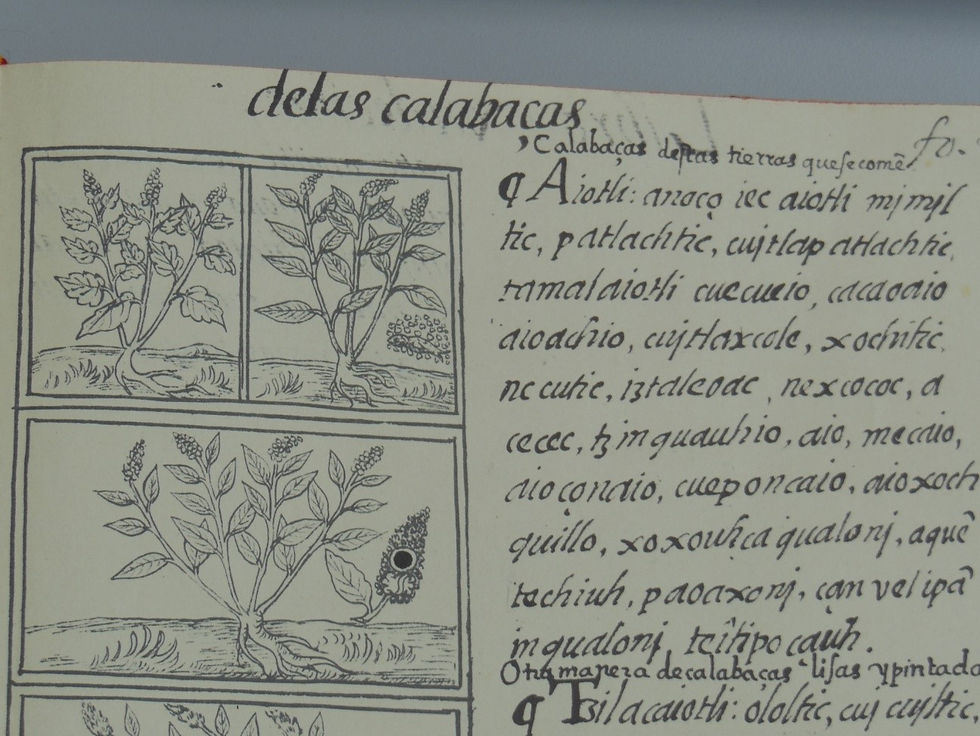 delas calabacas
fo.
Calabaças destas tierras quesecomẽ
¶ Aiotli: anoço iec aiotli mjmjl
tic, patlachtic, cujtlapatlachtic,
tamalaiotli cuecueio, cacaoaio
aioachio, cujtlaxcole, xochitic,
necutic, iztaleoac, nexcococ, a
cecec, tzinquauhio, aio, mecaio,
aioçonaio, cueponcaio, aioxoch
quillo, xoxouhca qualonj, aquẽ
techiuh, paoaxonj, çan vel ipã
inqualonj, teîtipocauh.
Otra manera de calabaças lisas ypintada
¶ Tzilacaiotli: ololtic, cuj cujltic,